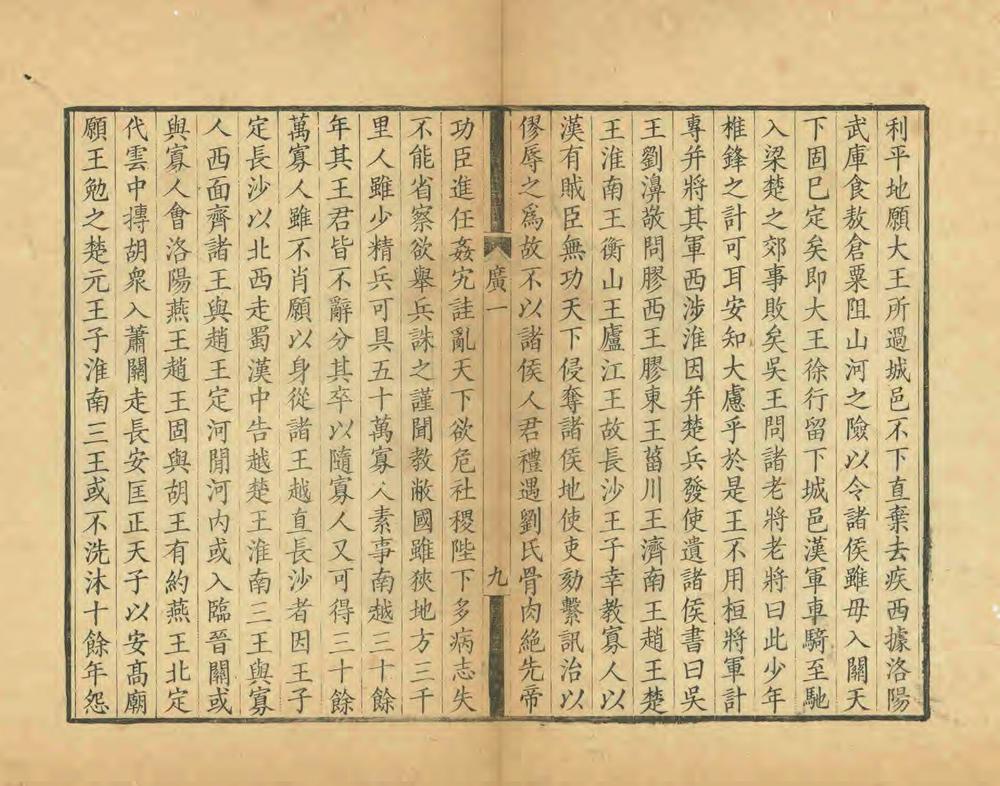 利平地願大王所過城邑不下直棄去疾西據洛陽
武庫食敖倉粟阻山河之險以令諸侯雖毋入關天
下固已定矣即大王徐行留下城邑漢軍車騎至馳
入梁楚之郊事敗矣吳王問諸老將老將曰此少年
椎鋒之計可耳安知大慮乎於是王不用桓將軍計
專并將其軍西涉淮因并楚兵發使遺諸侯書曰吳
王劉濞敬問膠西王膠東王菑川王濟南王趙王楚
王淮南王衡山王廬江王故長沙王子幸教寡人以
漢有賊臣無功天下侵奪諸侯地使吏劾繫訊治以
僇辱之爲故不以諸侯人君禮遇劉氏骨肉絕先帝
廣一
九
功臣進任姦宄詿亂天下欲危社稷陛下多病志失
不能省察欲舉兵誅之謹聞教敝國雖狹地方三千
里人雖少精兵可具五十萬寡人素事南越三十餘
年其王君皆不辭分其卒以隨寡人又可得三十餘
萬寡人雖不肖願以身從諸王越直長沙者因王子
定長沙以北西走蜀漢中告越楚王淮南三王與寡
人西面齊諸王與趙王定河閒河內或入臨晉關或
與寡人會洛陽燕王趙王固與胡王有約燕王北定
代雲中摶胡衆入蕭關走長安匡正天子以安高廟
願王勉之楚元王子淮南三王或不洗沐十餘年怨